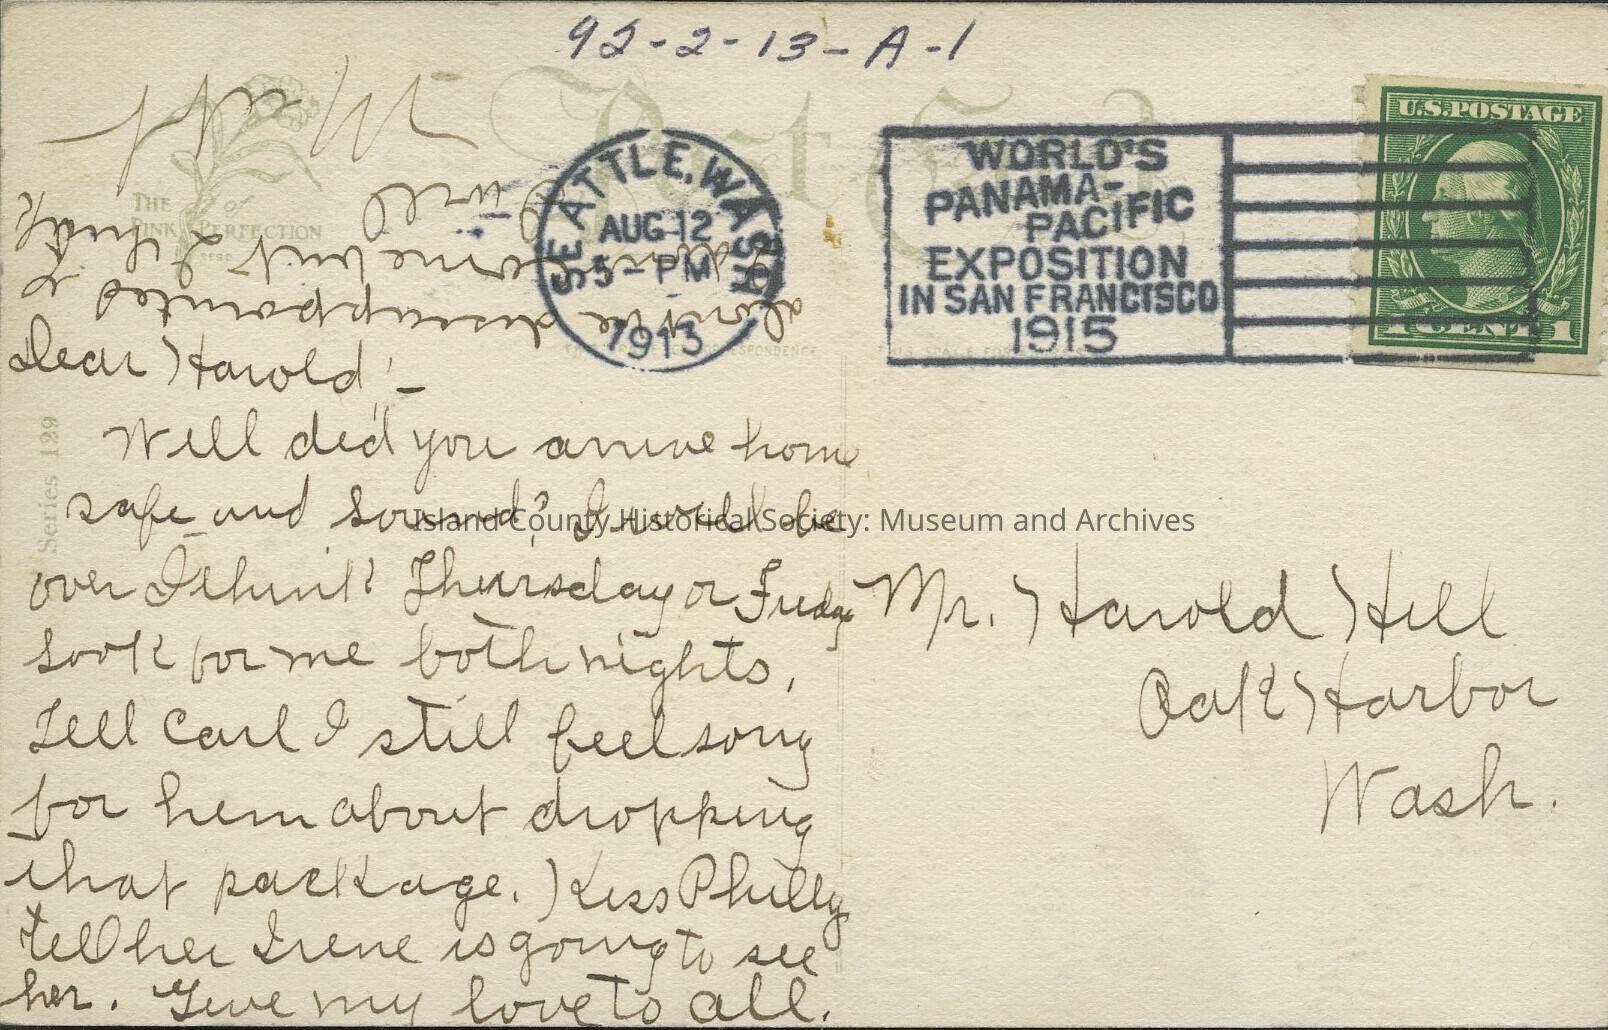 92-2-13-A-1
Post Card
THE PINK of PERFECTION
SEATTLE, WASH
AUG 12
5-PM
1913
WORLD'S
PANAMA-
PACIFIC
EXPOSITION
IN SAN FRANCISCO
1915
U.S. POSTAGE
1 CENT 1
Series 129
Dear Harold!-
Well did you arrive home
safe and sound? I will be
over I think Thursday or Friday
Look for me both nights,
Tell Carl I still feel sorry
for him about dropping
that package. Kiss Philly
tell her Irene is going to see
her. Give my love to all.
don't be disappointed if
I don't come but I think
I will
Mr. Harold Hill
Oak Harbor
Wash.
Island County Historical Society: Museum and Archives